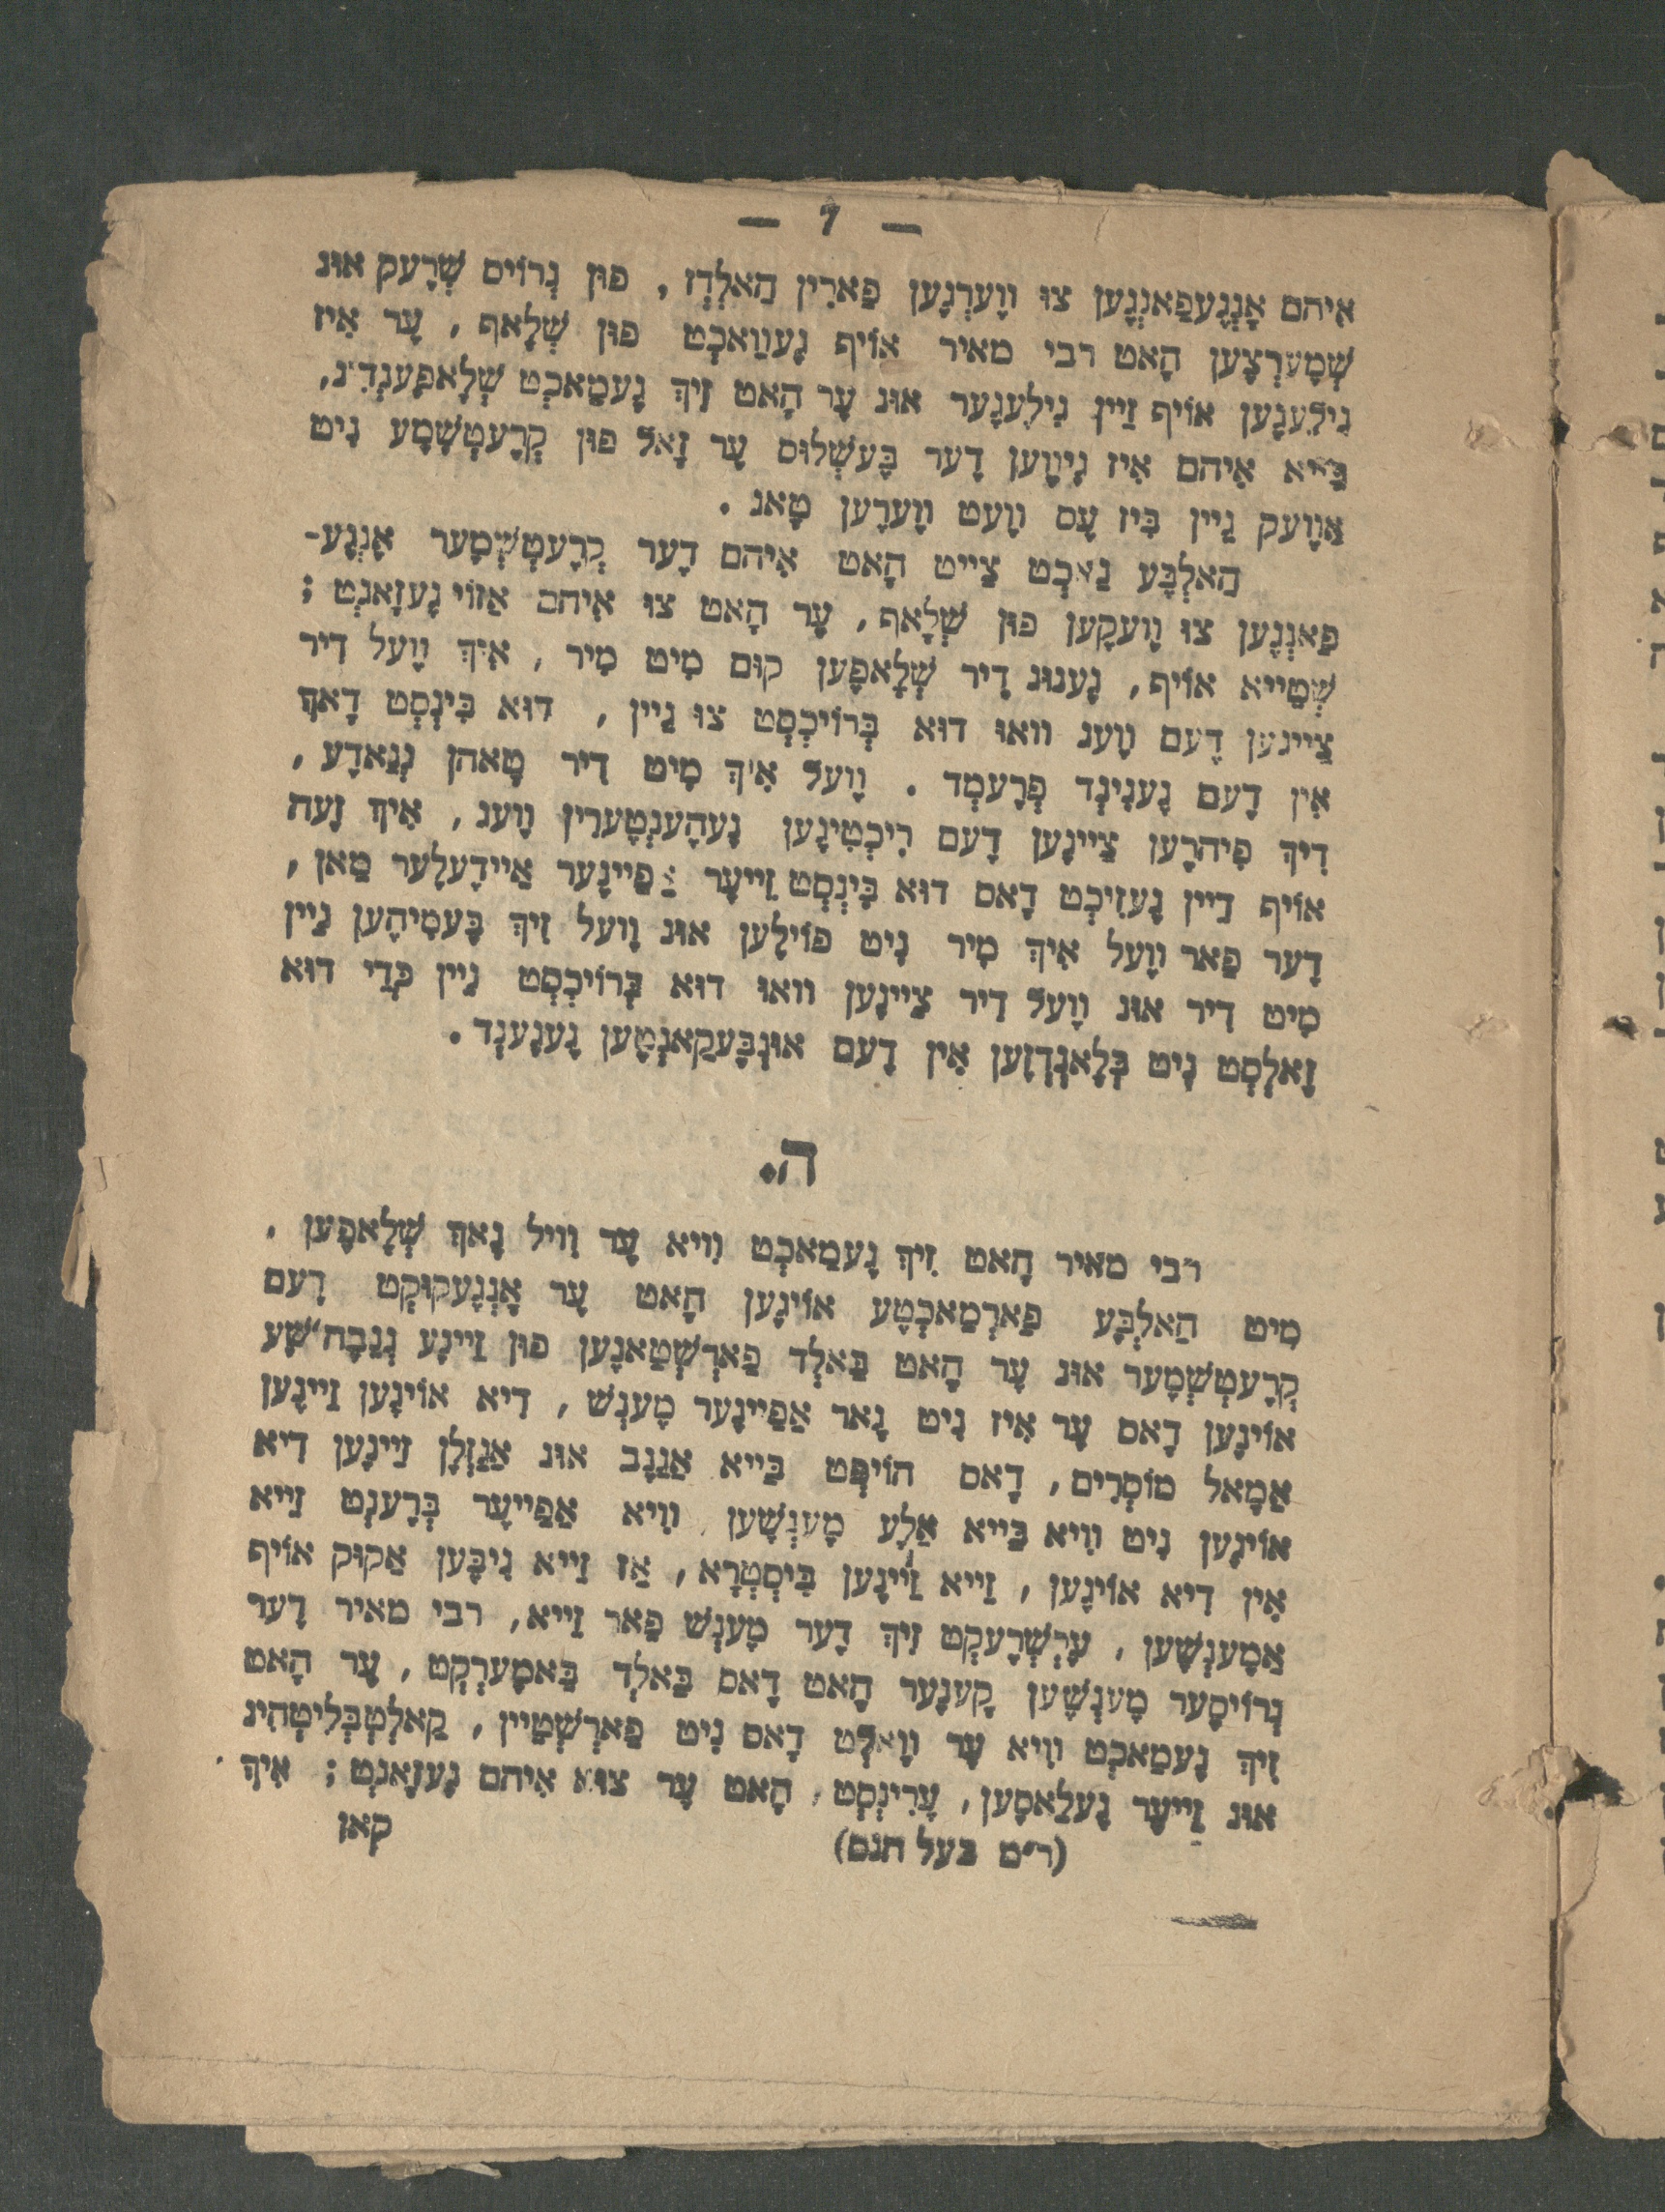 — 7 —
אִיהם אָנְגֶעפַאנְגֶען צוּ ווֶערְגֶען פַארִין הַאלְדְז, פוּן גְרוֹיס שְׁרֶעק אוּנ
שְׁמֶערְצֶען הָאט רבי מאיר אוֹיף גֶעוַואכְט פוּן שְׁלָאף, עֶר אִיז
גִילֶעגֶען אוֹיף זַיין גִילֶעגֶער אוּנ עֶר הָאט זִיךְ גֶעמַאכְט שְׁלָאפֶענְדִיג,
בַּייא אִיהם אִיז גִיוֶוען דֶער בֶּעשְׁלוּס עֶר זָאל פוּן קְרֶעטְשְׁמֶע נִיט
אַוֶועק גַיין בִּיז עֶס וֶועט וֶוערֶען טָאג .
הַאלְבֶּע נַאכְט צַייט הָאט אִיהם דֶער קְרֶעטְשְׁמֶער אָנְגֶע-
פַאנְגֶען צוּ וֶועקֶען פוּן שְׁלָאף, עֶר הָאט צוּ אִיהם אַזוֹי גֶעזָאגְט ;
שְׁטַייא אוֹיף, גֶענוּג דִיר שְׁלָאפֶען קוּם מִיט מִיר, אִיךְ וֶועל דִיר
צַייגֶען דֶעם וֶועג וואוּ דוּא בְּרוֹיכְסְט צוּ גַיין, דוּא בִּינְסְט דָאךְ
אִין דֶעם גֶעגִינְד פְרֶעמְד . וֶועל אִיךְ מִיט דִיר טָאהן גְנַאדֶע,
דִיךְ פִיהרֶען צַייגֶען דֶעם רִיכְטִיגֶען גֶעהֶענְטֶערִין וֶועג, אִיךְ זֶעה
אוֹיף דַיין גֶעזִיכְט דָאס דוּא בִּינְסְט זַייעֶר אַ פַיינֶער אַיידֶעלֶער מַאן,
דֶער פַאר וֶועל אִיךְ מִיר נִיט פוֹילֶען אוּנ וֶועל זִיךְ בֶּעמִיהֶען גַיין
מִיט דִיר אוּנ וֶועל דִיר צַייגֶען וואוּ דוּא בְּרוֹיכְסְט גַיין כְּדֵי דוּא
זָאלְסְט נִיט בְּלָאנְדְזֶען אִין דֶעם אוּנְבֶּעקַאנְטֶען גֶעגֶענְד.
ה.
רבי מאיר הָאט זִיךְ גֶעמַאכְט וִויא עֶר וִויל נָאךְ שְׁלָאפֶען .
מִיט הַאלְבֶּע פַארְמַאכְטֶע אוֹיגֶען הָאט עֶר אָנְגֶעקוּקְט דֶעם
קְרֶעטְשְׁמֶער אוּנ עֶר הָאט בַּאלְד פַארְשְׁטַאנֶען פוּן זַיינֶע גְנֵבָה'שֶׁע
אוֹיגֶען דָאס עֶר אִיז נִיט גָאר אַפַיינֶער מֶענְשׁ, דִיא אוֹיגֶען זַיינֶען
אַמָאל מוֹסְרִים, דָאס הוֹיפְּט בַּייא אַגַנָב אוּנ אַגַזְלָן זַיינֶען דִיא
אוֹיגֶען נִיט וִויא בַּייא אַלֶע מֶענְשֶׁען וִויא אַפַייעֶר בְּרֶענְט זַייא
אִין דִיא אוֹיגֶען, זַייא זַיינֶען בִּיסְטְרָא, אַז זַייא גִיבֶּען אַקוּק אוֹיף
אַמֶענְשֶׁען, עֶרְשְׁרֶעקְט זִיךְ דֶער מֶענְשׁ פַאר זַייא, רבי מאיר דֶער
גְרוֹיסֶער מֶענְשֶׁען קֶענֶער הָאט דָאס בַּאלְד בַּאמֶערְקְט, עֶר הָאט
זִיךְ גֶעמַאכְט וִויא עֶר ווָאלְט דָאס נִיט פַארְשְׁטַיין, קַאלְטְבְּלִיטְהִיג
אוּנ זַייעֶר גֶעלַאסֶען, עֶרִינְסְט, הָאט עֶר צוּא אִיהם גֶעזָאגְט ; אִיךְ
(ר״מ בעל הנס) קאן